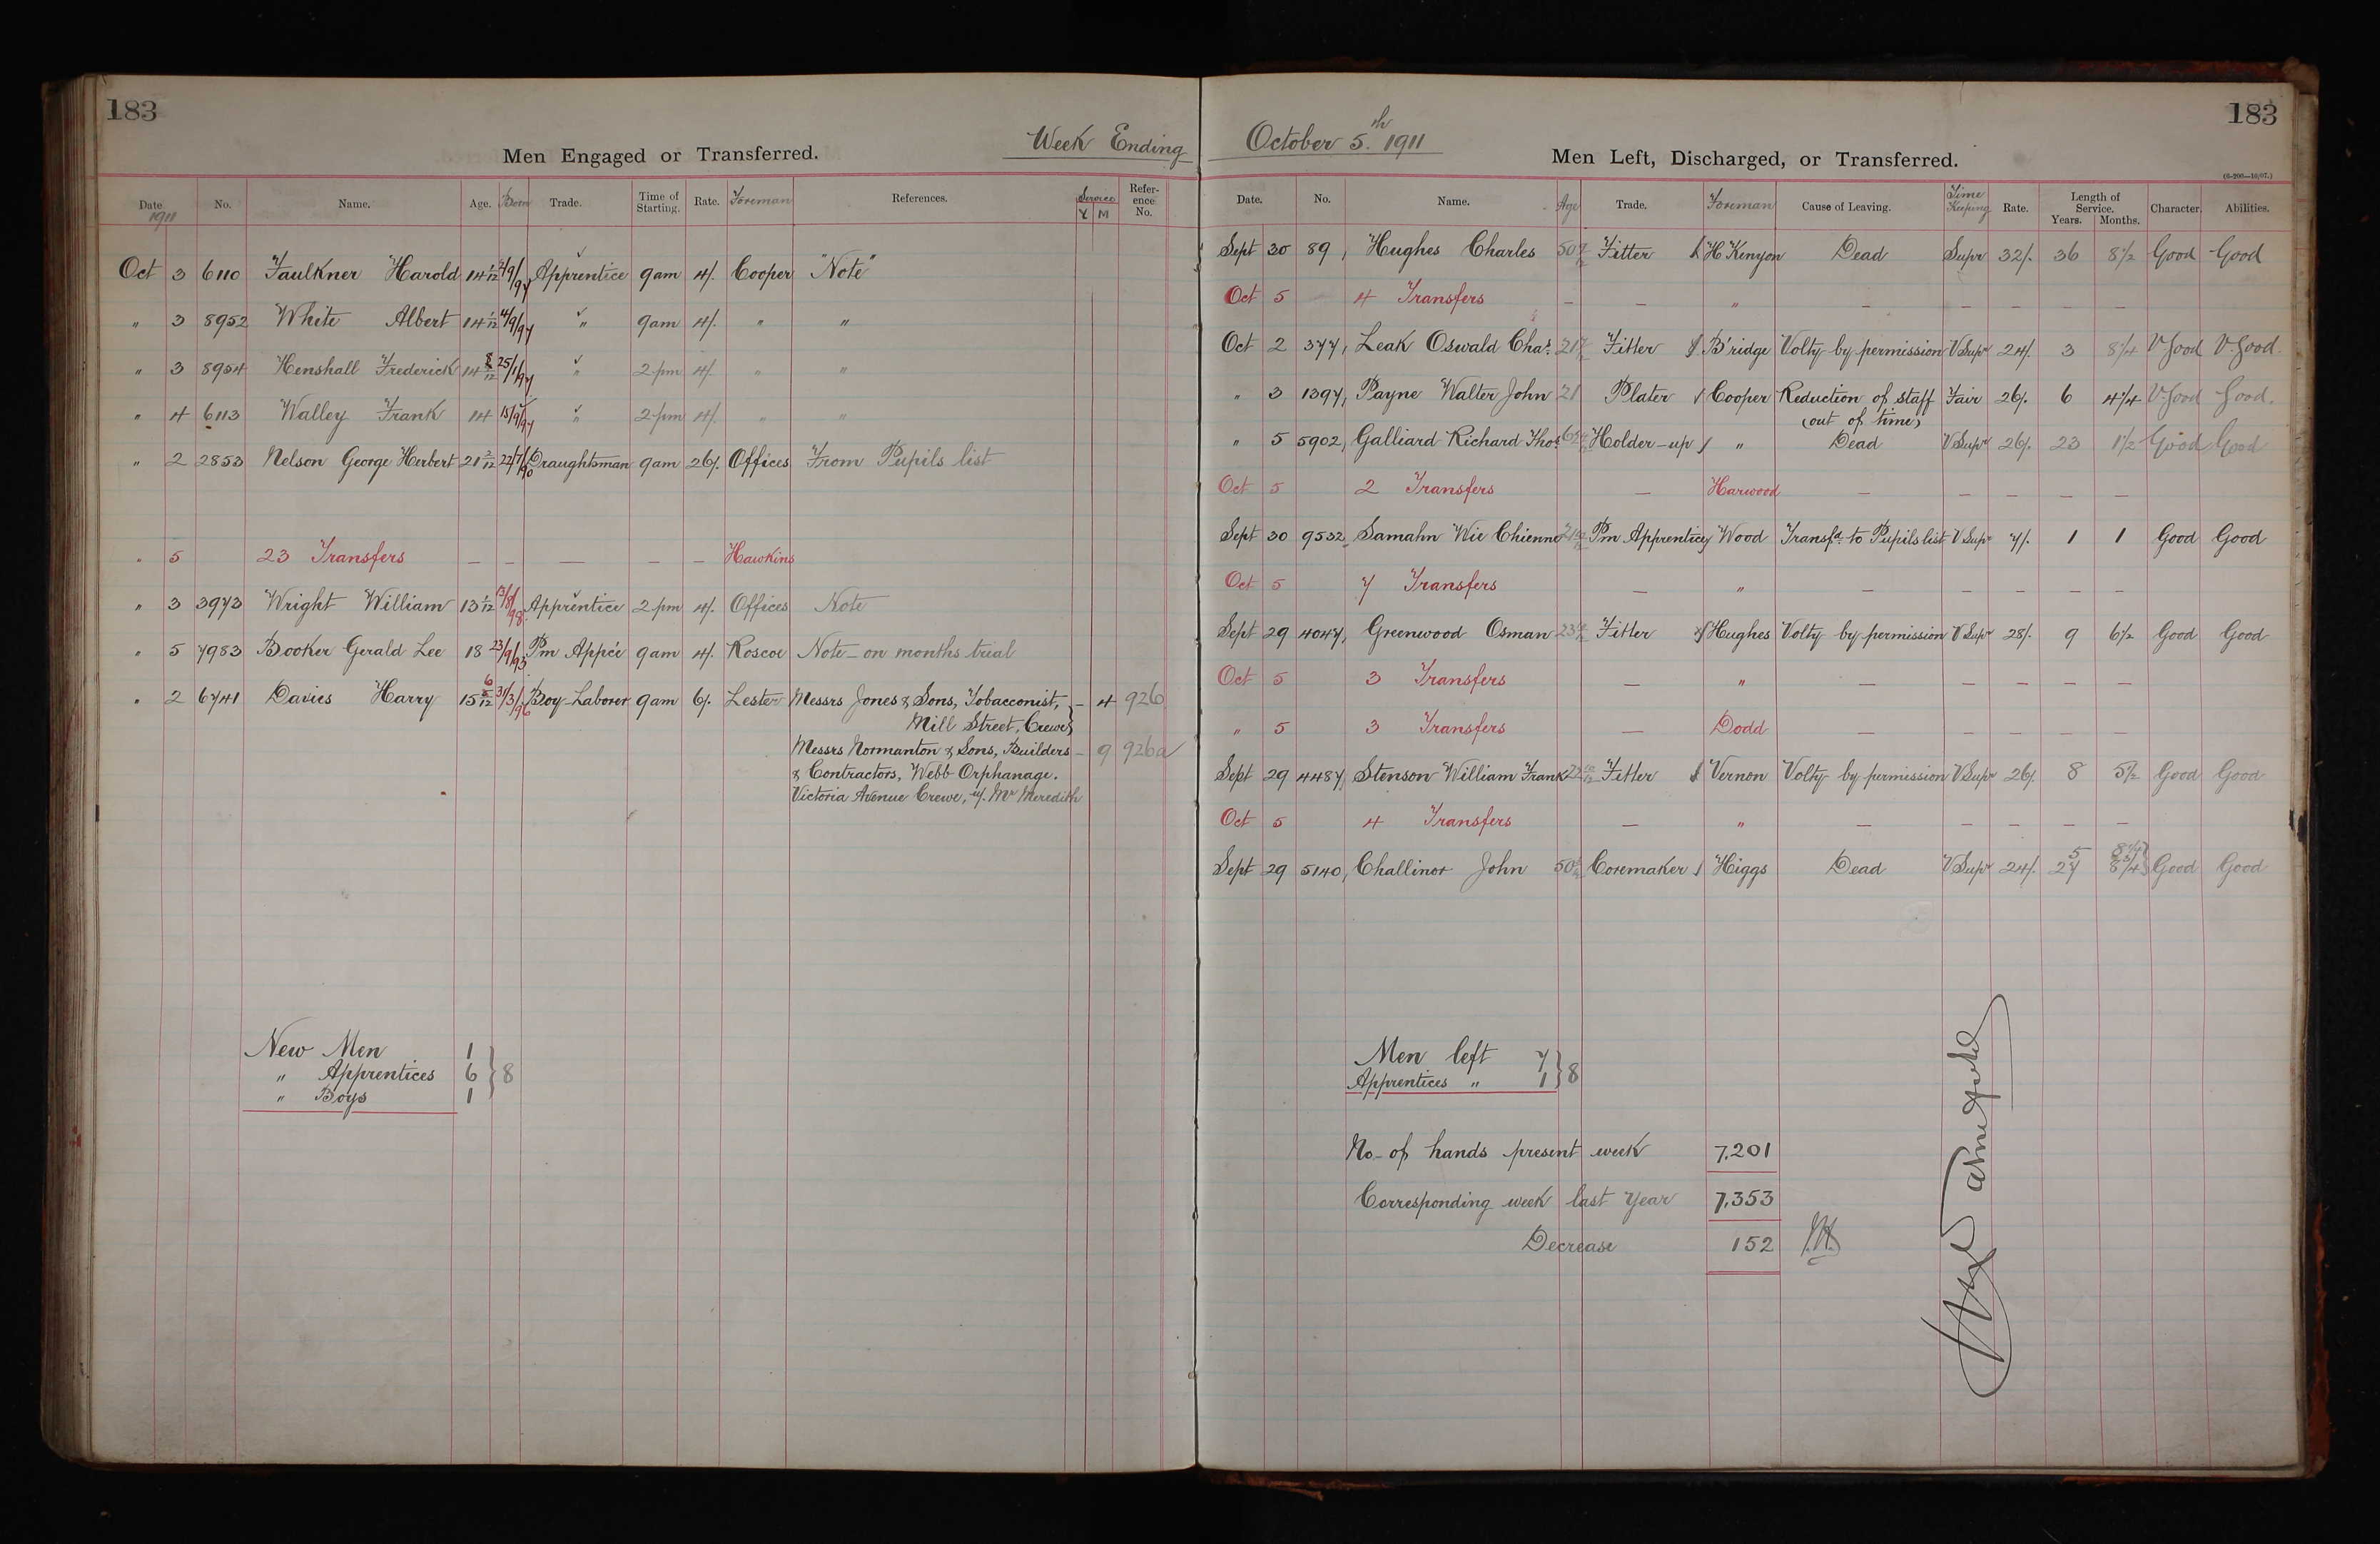 183
Men Engaged or Transferred.
Week Ending
Date 1911 No. Name. Age. Born Trade. Time of Starting. Rate. Foreman References. Service Y M Reference No.
Oct 3 6110 Faulkner Harold 14 1/12 2/9/97 Apprentice 9am 4/. Cooper "Note"
" 3 8952 White Albert 14 1/12 4/9/97 " 9am 4/. " "
" 3 8954 Henshall Frederick 14 8/12 25/1/97 " 2pm 4/. " "
" 4 6113 Walley Frank 14 15/9/97 " 2pm 4/. " "
" 2 2853 Nelson George Herbert 21 2/12 22/7/90 Draughtsman 9am 26/. Offices From Pupils list
" 5 23 Transfers — — — — — Hawkins
" 3 3973 Wright William 13 1/12 /8/98 Apprentice 2pm 4/. Offices Note
" 5 7983 Booker Gerald Lee 18 23/9/93 Pm Appce 9am 4/. Roscoe Note – on months trial
" 2 6741 Davies Harry 15 6/12 31/3/96 Boy-Laborer 9am 6/. Lester Messrs Jones & Sons, Tobacconist, – 4 926
Mill Street, Crewe
Messrs Normanton & Sons, Builders – 9 926a
& Contractors, Webb Orphanage.
Victoria Avenue Crewe, Mr Meredith
New Men 1
" Apprentices 6 } 8
" Boys 1
183
October 5th 1911
Men Left, Discharged, or Transferred.
Date. No. Name. Age Trade. Foreman Cause of Leaving. Time Keeping Rate. Length of Service. Years. Months. Character. Abilities.
Sept 30 89, Hughes Charles 50 Fitter H Kenyon Dead Supr 32/. 36 8½ Good Good
Oct 5 4 Transfers — — " — — — — —
Oct 2 377, Leak Oswald Chas. 21 Fitter B'ridge Volty by permission V Supr 24/. 3 8¼ V Good V. Good
" 3 1397, Payne Walter John 21 Plater Cooper Reduction of staff Fair 26/. 6 4¼ V Good Good.
(out of time)
" 5 5902, Galliard Richard Thos. Holder-up " Dead V Supr 26/. 23 1½ Good Good
Oct 5 2 Transfers — Harwood — — — — —
Sept 30 9532, Samahn Wie Chienne 21 Pm Apprentice Wood Transfd. to Pupils list V Supr 4/. 1 1 Good Good
Oct 5 7 Transfers — " — — — — —
Sept 29 4047, Greenwood Osman 23 Fitter Hughes Volty by permission V Supr 28/. 9 6½ Good Good
Oct 5 3 Transfers — " — — — — —
" 5 3 Transfers — Dodd — — — — —
Sept 29 4487, Stenson William Frank 22 Fitter Vernon Volty by permission V Supr 26/. 8 5½ Good Good
Oct 5 4 Transfers — " — — — — —
Sept 29 5140, Challinor John 50 Coremaker Higgs Dead V Supr 24/. 27 8¾ Good Good
Men left 7
Apprentices " 1 } 8
No. of hands present week 7,201
Corresponding week last year 7,353
Decrease 152